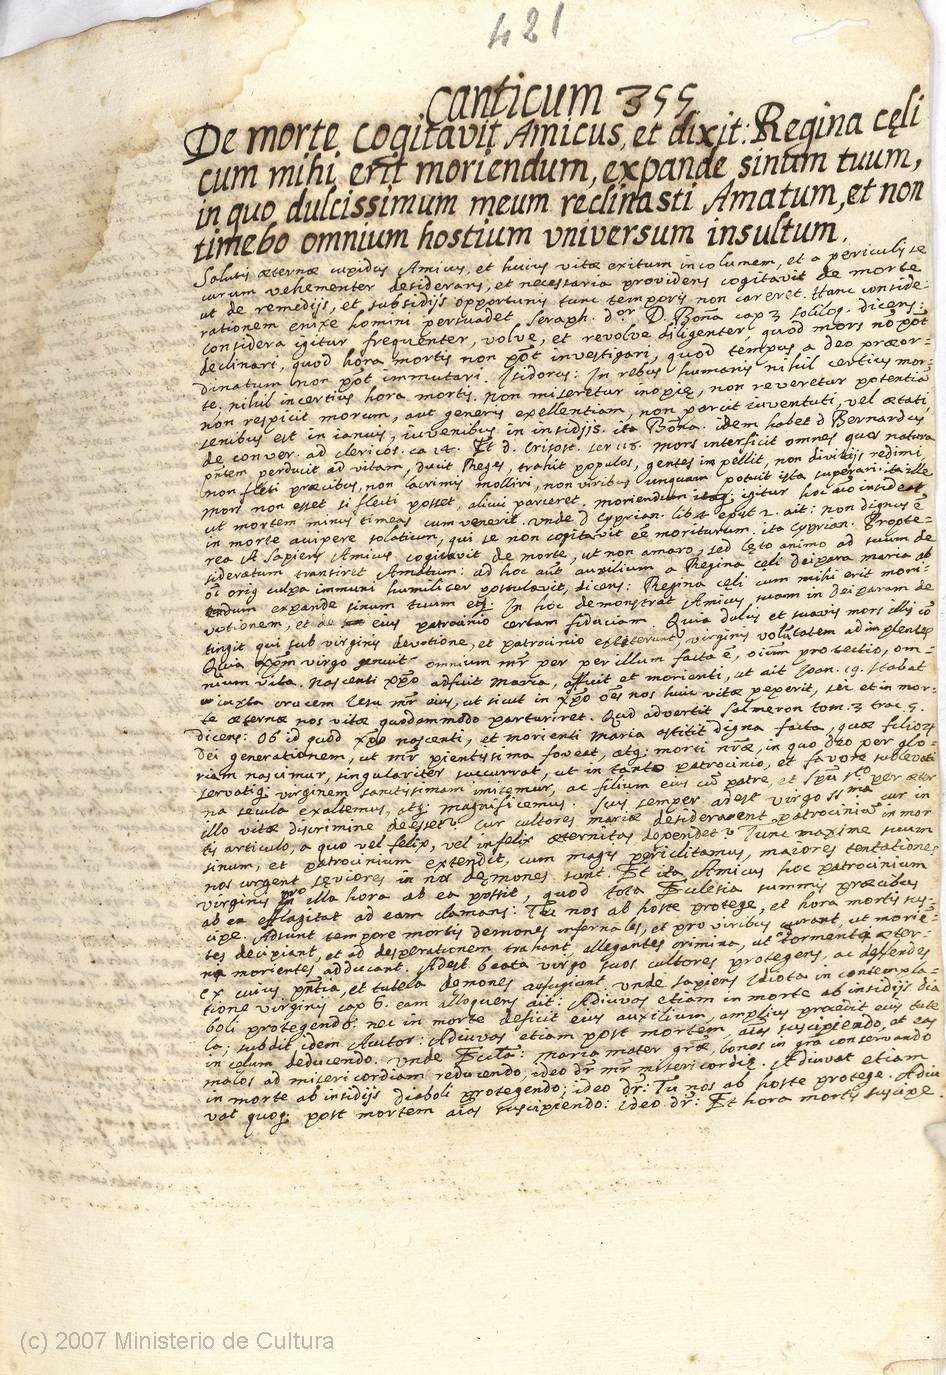 421
Canticum 355
De morte cogitavit Amicus, et dixit: Regina cęli
cum mihi erit moriendum, expande sinum tuum,
in quo dulcissimum meum reclinasti Amatum, et non
timebo omnium hostium vniversum insultum.
Salutis æternæ cupidus Amicus, et huius vitæ exitum incolumem, et a periculis se
curum vehementer desiderans, et necessaria providens cogitavit de morte
ut de remedijs, et subsidijs opportunis tunc temporis non careret. Hanc conside-
rationem enixe homini persuadet Seraph. dor. D. Bona cap 3 solilog. dicens:
Considera igitur frequenter, volve, et revolve diligenter, quod mors nõ põt
declinari, quod hora mortis non põt investigari, quod tempus a Deo præor-
dinatum non põt immutari. Isidorus: In rebus humanis nihil certius mor-
te, nihil incertius hora mortis. Non miseretur inopię, non reveretur potentia
non respicit morum, aut generis exellentiam, non parcit iuventuti, vel ætati,
senibus est in ianuis, iuvenibus in insidijs. ita Bona. idem habet d Bernardus
de conver. ad clericos. ca 14. Et d. Crisost. ser 118. Mors interficit omnes ques natura
perduit ad vitam, duit Reges, trahit populos, gentes impellit, non divitijs redimi,
non fleti præcibus, non lacrimis molliri, non viribus unquam potuit ista superari. ita ille
mors non esset si flecti posset, alicui parceret. moriendum itaq; igitur hoc aĩo insideat
ut mortem minus timeas cum venerit. vnde d Cyprian. lib 4 epist 2. ait: non dignus ẽ
in morte accipere solatium, qui se non cogitavit eẽ moriturum. ita Cyprian. Propte-
rea A Sapiens Amicus cogitavit de morte, ut non amaro, sed lęto animo ad suum de
sideratum transiret Amatum: ad hoc aũt auxilium a Regina cęli deipara maria ab
oĩ orig culpa immuni humiliter postulavit, dicens: Regina cęli cum mihi erit mori-
endum expande sinum tuum etc. In hoc demonstrat Amicus suam in Deiparam de
votionem, et de eius patrocinio certam fiduciam. Quia dulcis et suavis mors illis cõ
tingit qui sub virginis devotione, et patrocinio extiterunt virginis voluntatem adimplentes
Quia Xpm virgo genuit omnium mr per per illum facta ẽ, oium protectio, om-
nium vita. Nascenti Xpo adfuit Maria, affuit et morienti, ut ait Joan. 19. stabat
iuxta crucem Iesu mr eius, ut sicut in Xpo oẽs nos huic vitæ peperit, sic et in mor-
te æternæ nos vitæ quodammodo parturiret. Qud advertit Salmeron tom. 3 trac 5.
dicens: Ob id quod Xpo nascenti, et morienti Maria astitit digna facta, quæ filior
dei generationem, ut mr pientissima foveat, atq; morti nræ, in quo Deo per glo-
riam nascimur, singulariter succurrat, ut in tanto patrocinio, et favore sublevati
servatiq; virginem sanctissimam imitemur, ac filium eius cũ patre, et Spu Sto per æter
na secula exaltemus, atq; magnificemus. Suis semper adest virgo SSma cur in
illo vitæ discrimine deesset? Cur cultores mariæ desiderarent patrociniũ in mor
tis articulo, a quo vel felix, vel infelix æternitas dependet? Tunc maxime suum
sinum, et patrocinium extendit, cum magis periclitamus, maiores tentationes
nos urgent sęviores in nos dęmones sunt. Et ita Amicus hoc patrocinium
virginis pro illa hora ab ea possit, quod tota Ecclesia summis præcibus
ab ea efflagitat ad eam clamans: Tu nos ab hoste protege, et hora mortis sus-
cipe. Adsunt tempore mortis demones infernales, et pro viribus curant, ut morie-
tes decipiant, et ad desperationem trahant, allegantes crimina, ut ad tormenta æter-
na morientes adducant. Adest beata virgo suos cultores protegens, ac defendes
ex cuius pñtia, et tutela demones aufugiunt. vnde sapiens Idiota in contempla-
tione virginis cap 6. eam alloquens ait: Adiuvas etiam in morte ab insidijs dia
boli protegendo: nec in morte deficit eius auxilium, amplius præedit eius tute
la; subdit idem Auctor: Adiuvas etiam post mortem, aĩas suscipiendo, at eas
in cęlum deducendo. vnde Ecclã: Maria mater græ, bonos in grã conservando
malos ad misericordiam reducendo, ideo dr mr misericordię. Adiuvat etiam
in morte ab insidijs diaboli protegendo; ideo dr: Tu nos ab hoste protege. Adiu
vat quoq; post mortem aĩas suscipiendo: ideo dr: Et hora mortis suscipe.
(c) 2007 Ministerio de Cultura